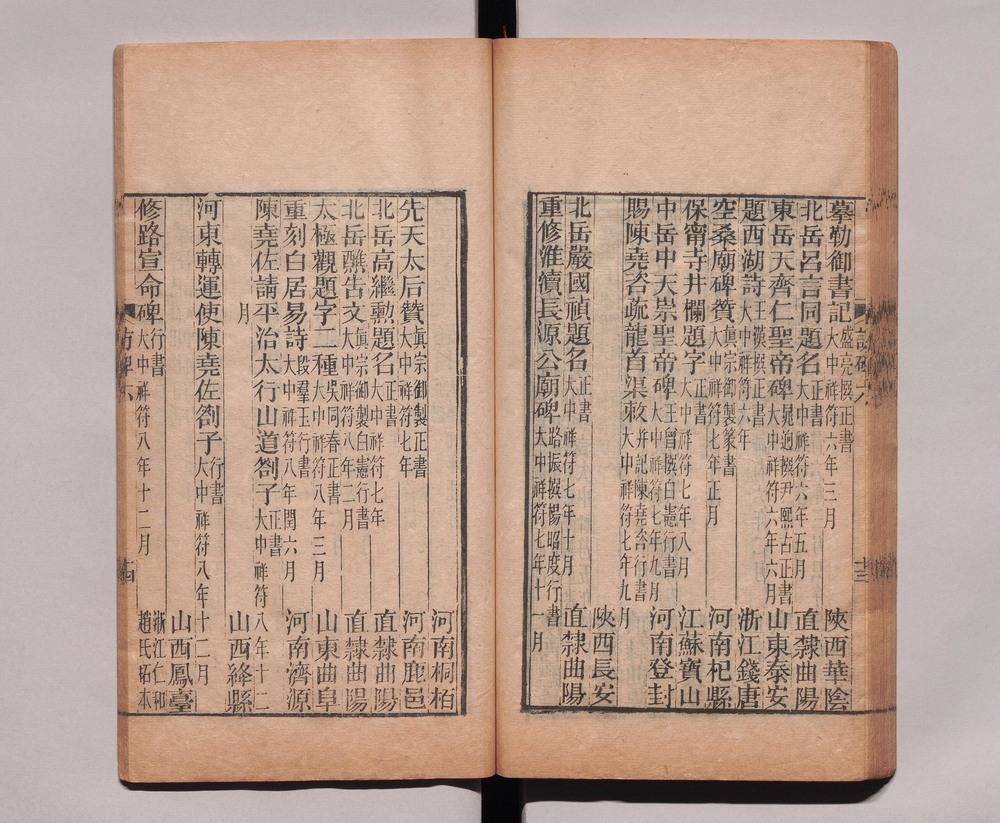 摹勒御書記盛亮撰正書大中祥符六年三月 陝西華陰
北岳呂言同題名正書大中祥符六年五月 直隸曲陽
東岳天齊仁聖帝碑晁迥撰尹熙古正書大中祥符六年六月 山東泰安
題西湖詩王漢撰正書大中祥符六年 浙江錢唐
空桑廟碑贊真宗御製篆書大中祥符七年正月 河南杞縣
保甯寺井欄題字正書大中祥符七年八月 江蘇寶山
中岳中天崇聖帝碑王曾撰白憲行書大中祥符七年九月 河南登封
賜陳堯咨疏龍首渠敕并記陳堯咨行書大中祥符七年九月
陝西長安
北岳嚴國禎題名正書大中祥符七年十月 直隸曲陽
重修淮瀆長源公廟碑路振撰楊昭度行書大中祥符七年十一月
河南桐柏
先天太后贊真宗御製正書大中祥符七年 河南鹿邑
北岳高繼勳題名正書大中祥符七年 直隸曲陽
北岳醮告文真宗御製白憲行書大中祥符八年二月 直隸曲陽
太極觀題字二種吳同春正書大中祥符八年三月 山東曲阜
重刻白居易詩段羣玉行書大中祥符八年閏六月 河南濟源
陳堯佐請平治太行山道劄子正書大中祥符八年十二
月 山西絳縣
河東轉運使陳堯佐劄子行書大中祥符八年十二月
山西鳳臺
修路宣命碑行書大中祥符八年十二月 浙江仁和趙氏拓本
十四